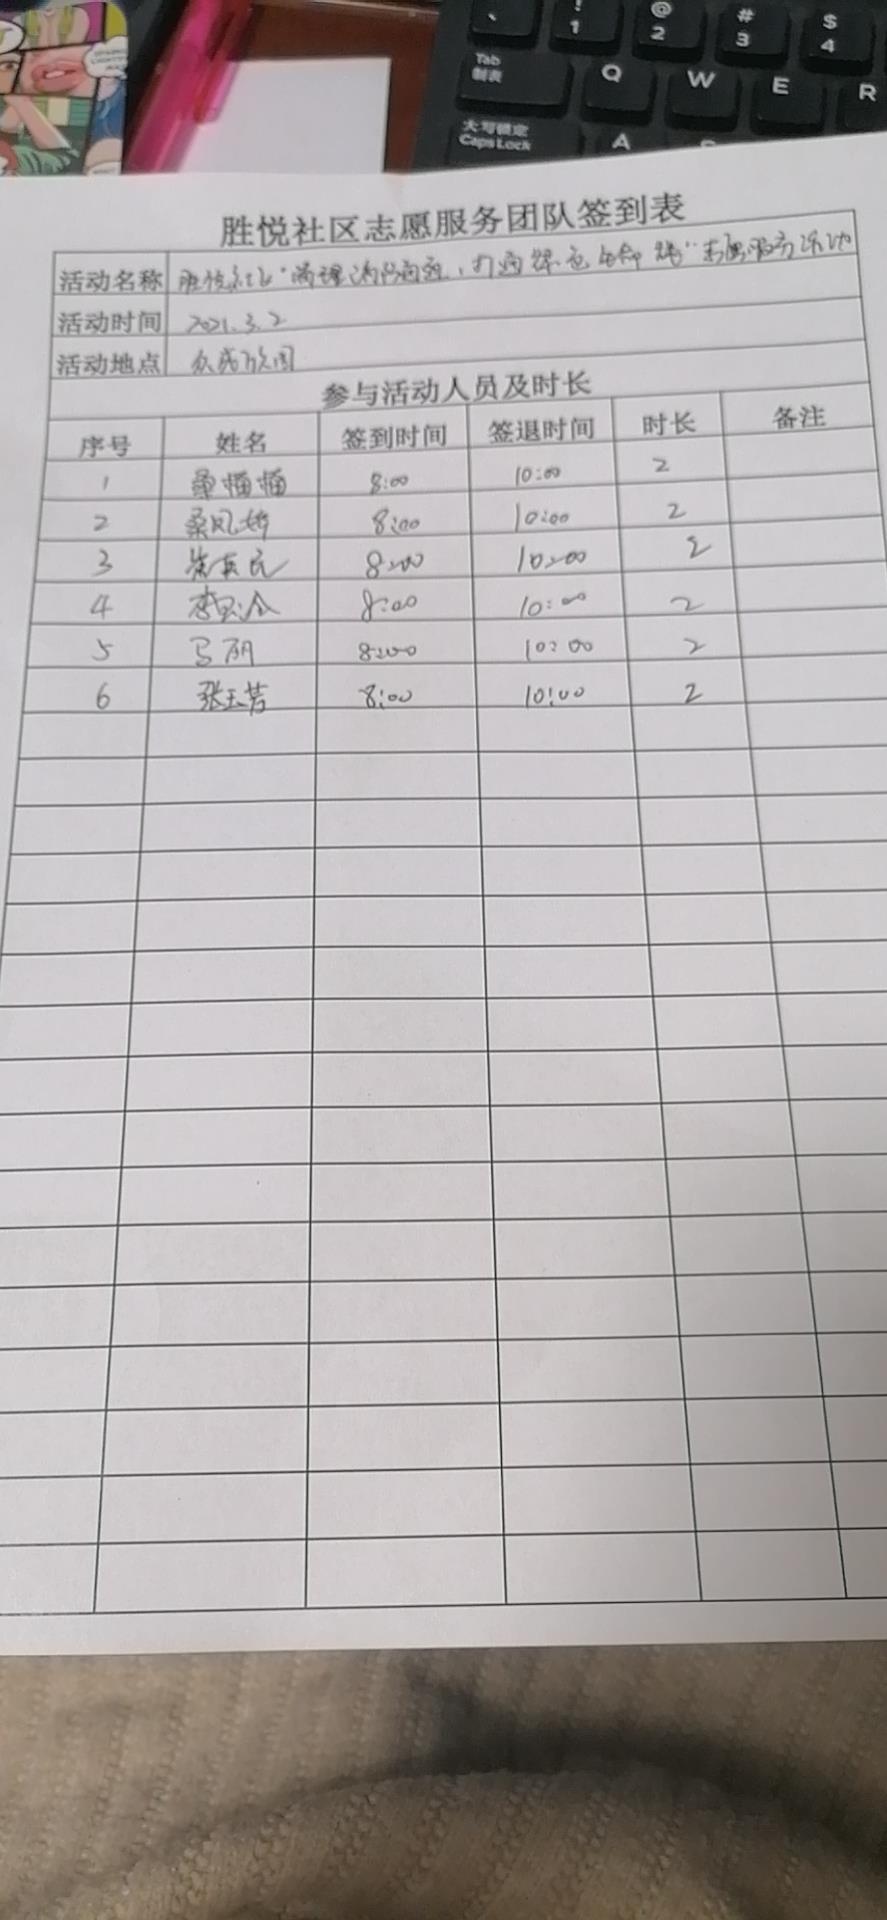 ` ! 1 @ 2 # 3 $ 4
Tab 制表 Q W E R
大写锁定 Caps Lock A
胜悦社区志愿服务团队签到表
活动名称 胜悦社区"清理 打通绿色 "志愿服务活动
活动时间 2021.3.2
活动地点 众成
参与活动人员及时长
序号 姓名 签到时间 签退时间 时长 备注
1 桑楠楠 8:00 10:00 2
2 桑凤婷 8:00 10:00 2
3 8:00 10:00 2
4 李 8:00 10:00 2
5 马丽 8:00 10:00 2
6 张玉芳 8:00 10:00 2